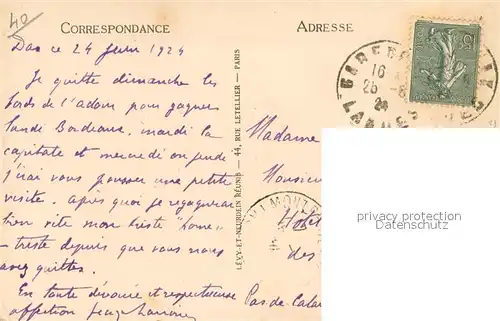 40
CORRESPONDANCE
Dax ce 24 Juin 1924
Je quitte dimanche les
bords de l'adour pour gagner
lundi Bordeaux, mardi la
capitale et mercredi ou jeudi
j'irai vous pousser une petite
visite. Après quoi je regagnerai
bien vite mon triste "home"
- triste depuis que vous nous
avez quittés.
En toute dévouée et respectueuse
affection
LÉVY ET NEURDEIN RÉUNIS — 44, RUE LETELLIER — PARIS
ADRESSE
GARE DE
16
25-6
24
LANDES
15c
Madame
Monsieur
Hotel
des
Pas-de-Calais
privacy protection
Datenschutz